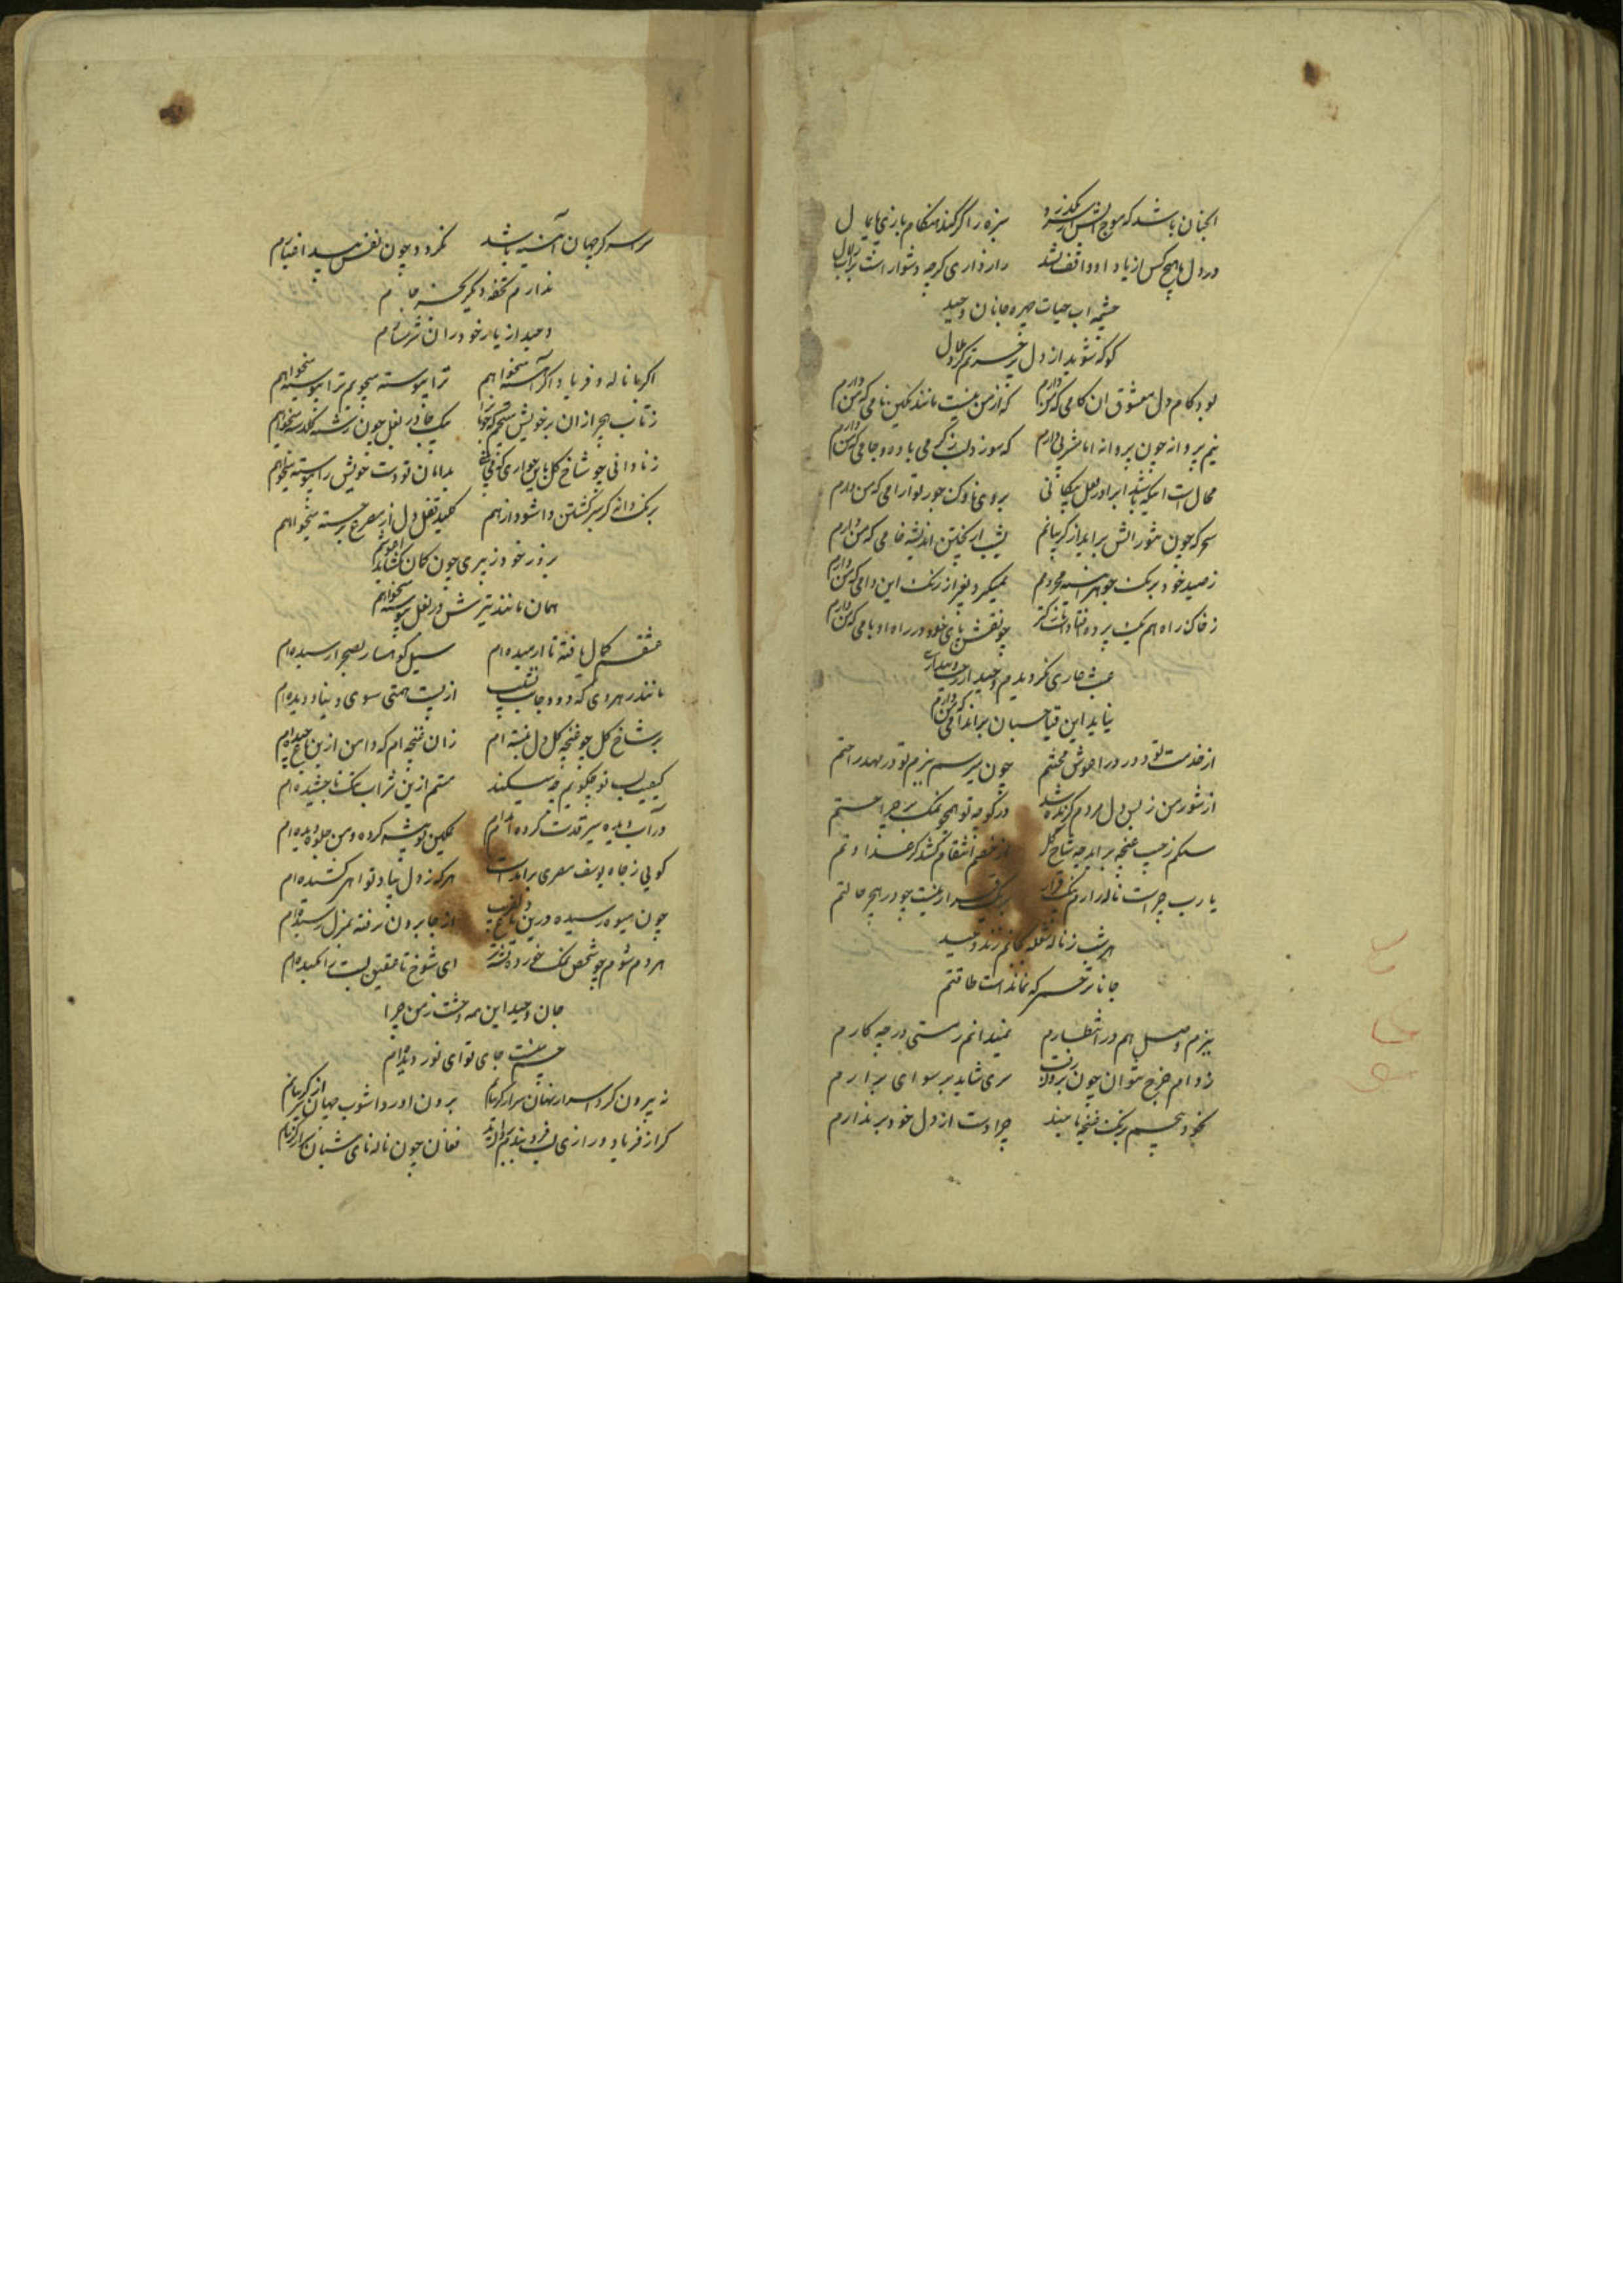 انچنان باشد که موج از سر بگذرد سبزه را گر کند هنگام بازی پایمال
درد دل با هیچ کس از یاد او واقف نشد راز داری گرچه دشوار است
چشمه اب حیات چهره جانان وحید
کو که شوید از دل پر حسرتم گرد ملال
بود کام دل معشوق ان کامی که من دارم که از من نیست مانند نگین نامی که من دارم
نیم پروانه چون پروانه اما مشربی دارم که سوزد لب ز گرمی باده و جامی که من دارم
محال است اینکه باشد ابرا در لعل پیکانی بروی ناوک جور تو ارامی که من دارم
سحر که چون شور اتش براید از گریبانم بشب از پختن اندیشه خامی که من دارم
ز صید خود برنک جوهر ایینه محرومم نمیگیرد بغیر از زنک این دامی که من دارم
ز خاک راه هم یک پرده افتاده است چو نقش پای خود در راه او بامی که من دارم
عبث عاری نکردیدم وحید از
نیاید این قبا چسبان بر اندامی که من دارم
از خدمت تو دور در اغوش محنتم چون میرسم ببزم تو در مهد راحتم
از شور من ز بس دل مردم گزنده شد در کوچه تو همچو نمک بر جراحتم
سنگم ز جیب غنچه براید چه شاخ گل از خصم انتقام کشد گر عداوتم
یا رب چراست ناله ام یک قرار نیست چو در هیچ حالتم
هر شب ز ناله شعله بجانم زند وحید
جانا ترحمی که نمانداست طاقتم
ببزم وصل هم در انتظارم نمیدانم ز مستی در چه کارم
ز دام چرخ نتوان چون برون رفت سری شاید برسوایی برارم
بخود پیچم برنک غنچه تا چند چرا دست از دل خود بر ندارم
سراسر گر جهان ایینه باشد نکردد چون نفس پیدا غبارم
ندارم تحفه دیگر بجز جانم
وحید از یار خود زان شرمسارم
اگر با ناله و فریاد اگر اهسته میخواهم ترا پیوسته میجویم ترا پیوسته میخواهم
ز تاب هجر ازان بر خویش میپیچم که یکجا در بغل چون رشته گلدسته میخواهم
ز نادانی چو شاخ گل باین خواری که بدامان تو دست خویش را پیوسته میخواهم
برنک دانه گر سرگشتن وا شود از هم کلید قفل دل از مصرع برجسته میخواهم
بزور خود ز پیری چون کمان نگشاید اغوشم
همان مانند تیرش در بغل پیوسته میخواهم
عشقم کمال یافته تا ارمیده ام سیل کوهسار بصحرا رسیده ام
مانند رهروی که دود جانب نشیب از پست همتی سوی دنیا دویده ام
بر شاخ گل چو غنچه گل دل نبسته ام زان غنچه ام که دامن ازین باغ چیده ام
کیفیت لب تو چگویم چه میکند مستم ازین شراب نمک ناچشیده ام
در آب دیده سیر قدت کرده ام مدام تمکین تو پیشه کرده و من جلوه دیده ام
گویی ز چاه یوسف مصری برامد است هر گه ز دل بیاد تو اهی کشیده ام
چون میوه رسیده درین باغ دلفریب از جا برون نرفته بمنزل رسیده ام
هر دم شوم چو شخص نمک خورده تشنه تر ای شوخ تا عقیق لبت را مکیده ام
جان وحید این همه وحشت ز من چرا
چشم منست جای تو ای نور دیده ام
نه بیرون کرد اسرار نهان سر از گریبانم برون اورد اشوب جهان سر از گریبانم
گر از فریاد و زاری لب فرو بندم فغان چون ناله نای شبان سر از گریبانم